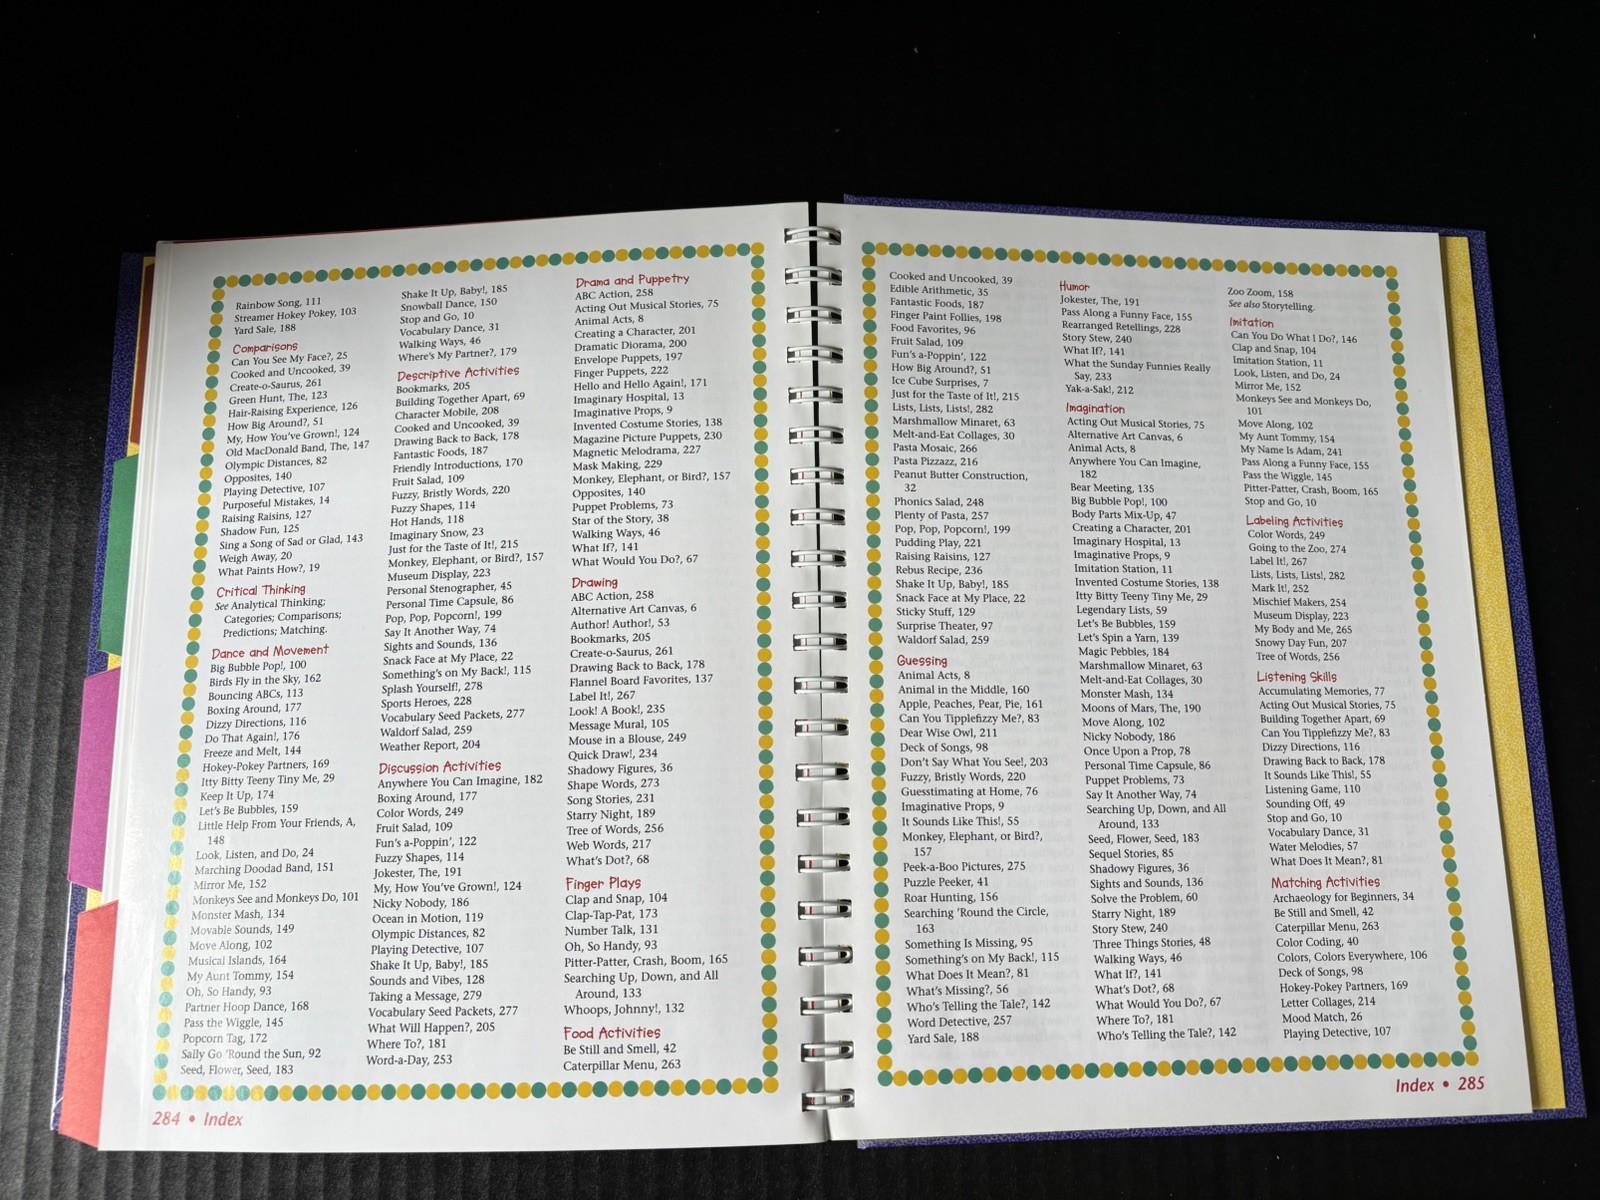 Rainbow Song, 111
Streamer Hokey Pokey, 103
Yard Sale, 188
Comparisons
Can You See My Face?, 25
Cooked and Uncooked, 39
Create-o-Saurus, 261
Green Hunt, The, 123
Hair-Raising Experience, 126
How Big Around?, 51
My, How You've Grown!, 124
Old MacDonald Band, The, 147
Olympic Distances, 82
Opposites, 140
Playing Detective, 107
Purposeful Mistakes, 14
Raising Raisins, 127
Shadow Fun, 125
Sing a Song of Sad or Glad, 143
Weigh Away, 20
What Paints How?, 19
Critical Thinking
See Analytical Thinking;
Categories; Comparisons;
Predictions; Matching.
Dance and Movement
Big Bubble Pop!, 100
Birds Fly in the Sky, 162
Bouncing ABCs, 113
Boxing Around, 177
Dizzy Directions, 116
Do That Again!, 176
Freeze and Melt, 144
Hokey-Pokey Partners, 169
Itty Bitty Teeny Tiny Me, 29
Keep It Up, 174
Let's Be Bubbles, 159
Little Help From Your Friends, A,
148
Look, Listen, and Do, 24
Marching Doodad Band, 151
Mirror Me, 152
Monkeys See and Monkeys Do, 101
Monster Mash, 134
Movable Sounds, 149
Move Along, 102
Musical Islands, 164
My Aunt Tommy, 154
Oh, So Handy, 93
Partner Hoop Dance, 168
Pass the Wiggle, 145
Popcorn Tag, 172
Sally Go 'Round the Sun, 92
Seed, Flower, Seed, 183
Shake It Up, Baby!, 185
Snowball Dance, 150
Stop and Go, 10
Vocabulary Dance, 31
Walking Ways, 46
Where's My Partner?, 179
Descriptive Activities
Bookmarks, 205
Building Together Apart, 69
Character Mobile, 208
Cooked and Uncooked, 39
Drawing Back to Back, 178
Fantastic Foods, 187
Friendly Introductions, 170
Fruit Salad, 109
Fuzzy, Bristly Words, 220
Fuzzy Shapes, 114
Hot Hands, 118
Imaginary Snow, 23
Just for the Taste of It!, 215
Monkey, Elephant, or Bird?, 157
Museum Display, 223
Personal Stenographer, 45
Personal Time Capsule, 86
Pop, Pop, Popcorn!, 199
Say It Another Way, 74
Sights and Sounds, 136
Snack Face at My Place, 22
Something's on My Back!, 115
Splash Yourself!, 278
Sports Heroes, 228
Vocabulary Seed Packets, 277
Waldorf Salad, 259
Weather Report, 204
Discussion Activities
Anywhere You Can Imagine, 182
Boxing Around, 177
Color Words, 249
Fruit Salad, 109
Fun's a-Poppin', 122
Fuzzy Shapes, 114
Jokester, The, 191
My, How You've Grown!, 124
Nicky Nobody, 186
Ocean in Motion, 119
Olympic Distances, 82
Playing Detective, 107
Shake It Up, Baby!, 185
Sounds and Vibes, 128
Taking a Message, 279
Vocabulary Seed Packets, 277
What Will Happen?, 205
Where To?, 181
Word-a-Day, 253
Drama and Puppetry
ABC Action, 258
Acting Out Musical Stories, 75
Animal Acts, 8
Creating a Character, 201
Dramatic Diorama, 200
Envelope Puppets, 197
Finger Puppets, 222
Hello and Hello Again!, 171
Imaginary Hospital, 13
Imaginative Props, 9
Invented Costume Stories, 138
Magazine Picture Puppets, 230
Magnetic Melodrama, 227
Mask Making, 229
Monkey, Elephant, or Bird?, 157
Opposites, 140
Puppet Problems, 73
Star of the Story, 38
Walking Ways, 46
What If?, 141
What Would You Do?, 67
Drawing
ABC Action, 258
Alternative Art Canvas, 6
Author! Author!, 53
Bookmarks, 205
Create-o-Saurus, 261
Drawing Back to Back, 178
Flannel Board Favorites, 137
Label It!, 267
Look! A Book!, 235
Message Mural, 105
Mouse in a Blouse, 249
Quick Draw!, 234
Shadowy Figures, 36
Shape Words, 273
Song Stories, 231
Starry Night, 189
Tree of Words, 256
Web Words, 217
What's Dot?, 68
Finger Plays
Clap and Snap, 104
Clap-Tap-Pat, 173
Number Talk, 131
Oh, So Handy, 93
Pitter-Patter, Crash, Boom, 165
Searching Up, Down, and All
Around, 133
Whoops, Johnny!, 132
Food Activities
Be Still and Smell, 42
Caterpillar Menu, 263
284 • Index
Cooked and Uncooked, 39
Edible Arithmetic, 35
Fantastic Foods, 187
Finger Paint Follies, 198
Food Favorites, 96
Fruit Salad, 109
Fun's a-Poppin', 122
How Big Around?, 51
Ice Cube Surprises, 7
Just for the Taste of It!, 215
Lists, Lists, Lists!, 282
Marshmallow Minaret, 63
Melt-and-Eat Collages, 30
Pasta Mosaic, 266
Pasta Pizzazz, 216
Peanut Butter Construction,
32
Phonics Salad, 248
Plenty of Pasta, 257
Pop, Pop, Popcorn!, 199
Pudding Play, 221
Raising Raisins, 127
Rebus Recipe, 236
Shake It Up, Baby!, 185
Snack Face at My Place, 22
Sticky Stuff, 129
Surprise Theater, 97
Waldorf Salad, 259
Guessing
Animal Acts, 8
Animal in the Middle, 160
Apple, Peaches, Pear, Pie, 161
Can You Tipplefizzy Me?, 83
Dear Wise Owl, 211
Deck of Songs, 98
Don't Say What You See!, 203
Fuzzy, Bristly Words, 220
Guesstimating at Home, 76
Imaginative Props, 9
It Sounds Like This!, 55
Monkey, Elephant, or Bird?,
157
Peek-a-Boo Pictures, 275
Puzzle Peeker, 41
Roar Hunting, 156
Searching 'Round the Circle,
163
Something Is Missing, 95
Something's on My Back!, 115
What Does It Mean?, 81
What's Missing?, 56
Who's Telling the Tale?, 142
Word Detective, 257
Yard Sale, 188
Humor
Jokester, The, 191
Pass Along a Funny Face, 155
Rearranged Retellings, 228
Story Stew, 240
What If?, 141
What the Sunday Funnies Really
Say, 233
Yak-a-Sak!, 212
Imagination
Acting Out Musical Stories, 75
Alternative Art Canvas, 6
Animal Acts, 8
Anywhere You Can Imagine,
182
Bear Meeting, 135
Big Bubble Pop!, 100
Body Parts Mix-Up, 47
Creating a Character, 201
Imaginary Hospital, 13
Imaginative Props, 9
Imitation Station, 11
Invented Costume Stories, 138
Itty Bitty Teeny Tiny Me, 29
Legendary Lists, 59
Let's Be Bubbles, 159
Let's Spin a Yarn, 139
Magic Pebbles, 184
Marshmallow Minaret, 63
Melt-and-Eat Collages, 30
Monster Mash, 134
Moons of Mars, The, 190
Move Along, 102
Nicky Nobody, 186
Once Upon a Prop, 78
Personal Time Capsule, 86
Puppet Problems, 73
Say It Another Way, 74
Searching Up, Down, and All
Around, 133
Seed, Flower, Seed, 183
Sequel Stories, 85
Shadowy Figures, 36
Sights and Sounds, 136
Solve the Problem, 60
Starry Night, 189
Story Stew, 240
Three Things Stories, 48
Walking Ways, 46
What If?, 141
What's Dot?, 68
What Would You Do?, 67
Where To?, 181
Who's Telling the Tale?, 142
Zoo Zoom, 158
See also Storytelling.
Imitation
Can You Do What I Do?, 146
Clap and Snap, 104
Imitation Station, 11
Look, Listen, and Do, 24
Mirror Me, 152
Monkeys See and Monkeys Do,
101
Move Along, 102
My Aunt Tommy, 154
My Name Is Adam, 241
Pass Along a Funny Face, 155
Pass the Wiggle, 145
Pitter-Patter, Crash, Boom, 165
Stop and Go, 10
Labeling Activities
Color Words, 249
Going to the Zoo, 274
Label It!, 267
Lists, Lists, Lists!, 282
Mark It!, 252
Mischief Makers, 254
Museum Display, 223
My Body and Me, 265
Snowy Day Fun, 207
Tree of Words, 256
Listening Skills
Accumulating Memories, 77
Acting Out Musical Stories, 75
Building Together Apart, 69
Can You Tipplefizzy Me?, 83
Dizzy Directions, 116
Drawing Back to Back, 178
It Sounds Like This!, 55
Listening Game, 110
Sounding Off, 49
Stop and Go, 10
Vocabulary Dance, 31
Water Melodies, 57
What Does It Mean?, 81
Matching Activities
Archaeology for Beginners, 34
Be Still and Smell, 42
Caterpillar Menu, 263
Color Coding, 40
Colors, Colors Everywhere, 106
Deck of Songs, 98
Hokey-Pokey Partners, 169
Letter Collages, 214
Mood Match, 26
Playing Detective, 107
Index • 285